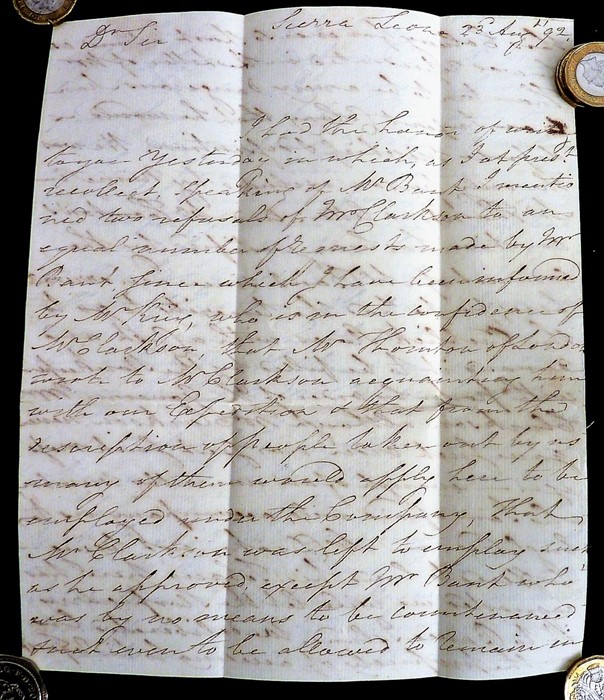 Sierra Leone 23d Augt 92
Dr Sir
I had the honor of
to you Yesterday in which, as I at prest
recollect, speaking of Mr Bant I mentio
ned two refusals of Mr Clarkson to an
equal number of requests made by Mr
Bant since which I have been informed
by Mr King, who is in the confidence of
Mr Clarkson, that Mr Thornton of London
wrote to Mr Clarkson acquainting him
with our Expedition & that from the
description of people taken out by us
many of them would apply here to be
employed under the Company, That
Mr Clarkson was left to employ such
as he approved, except Mr Bant who
was by no means to be countenanced
but even to be allowed to remain in